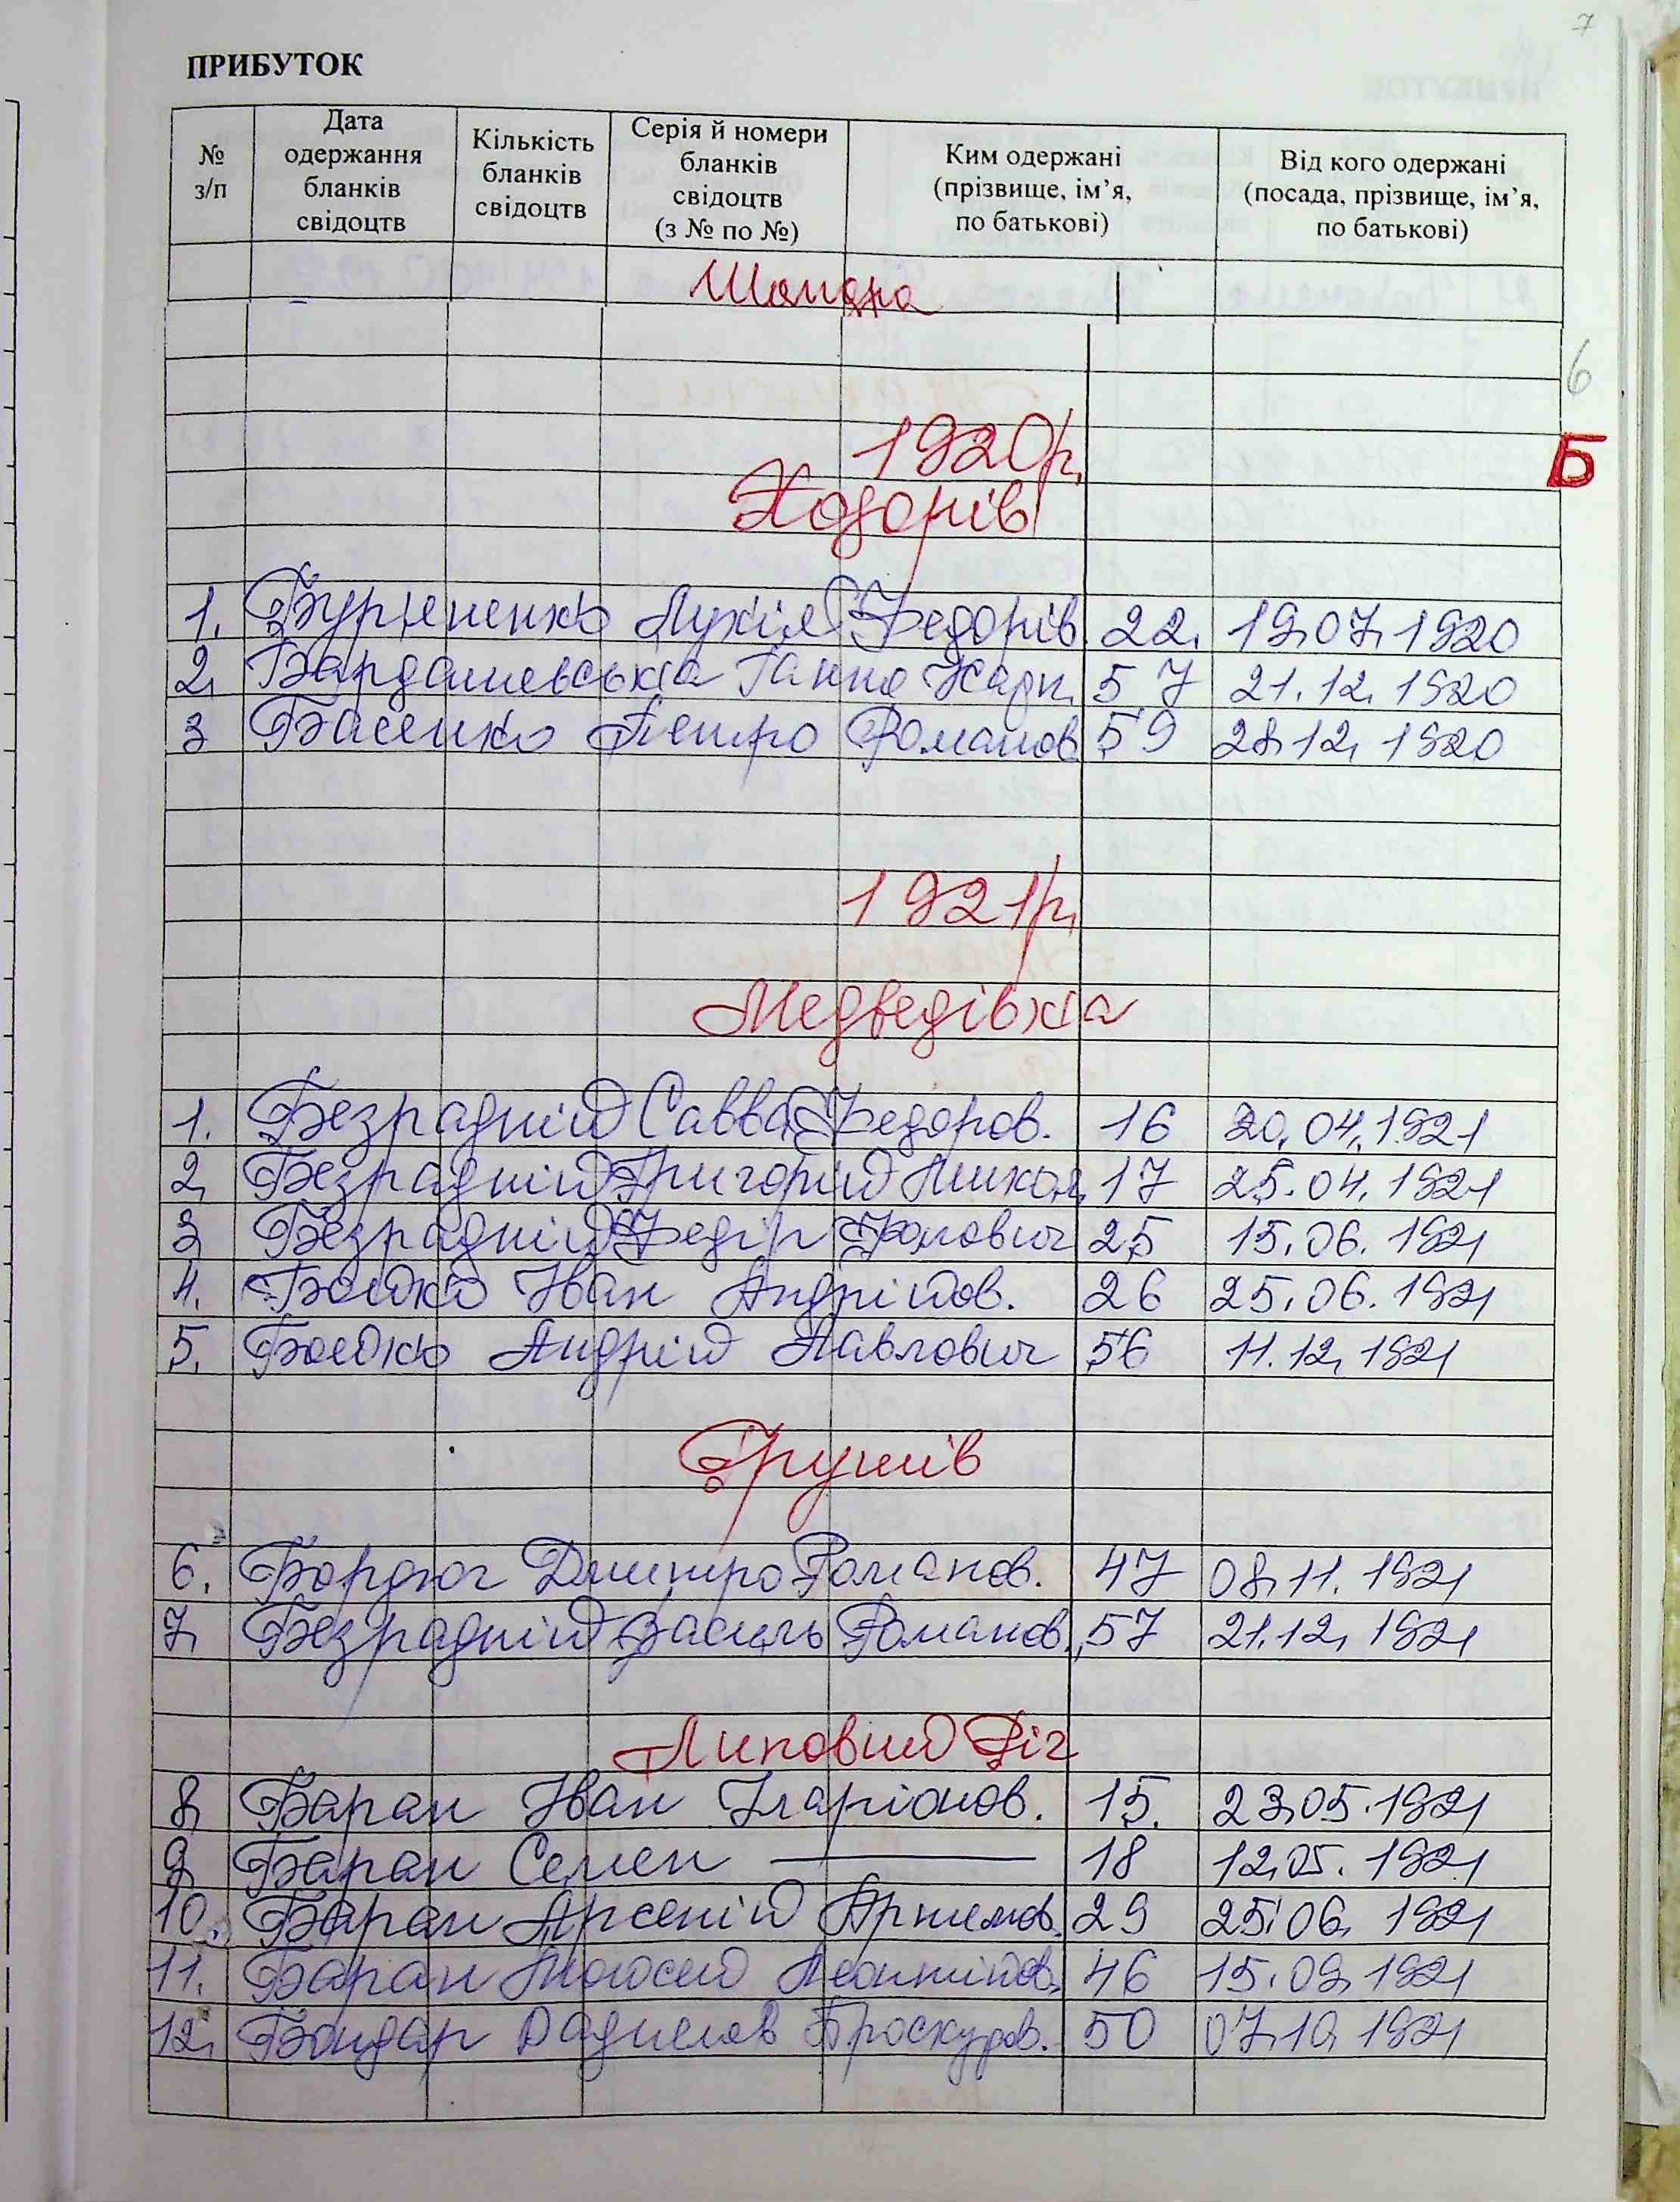 7
ПРИБУТОК
№ з/п
Дата одержання бланків свідоцтв
Кількість бланків свідоцтв
Серія й номери бланків свідоцтв (з № по №)
Ким одержані (прізвище, ім’я, по батькові)
Від кого одержані (посада, прізвище, ім’я, по батькові)
6
Б
1920р.
Ходорів
1. Лукія Федорів. 22. 19.07.1920
2. Бардашевська Ганна Харп. 57 21.12.1920
3 Басенко Петро Романов. 59 28.12.1920
1921р.
Медведівка
1. Безрадній Савва Федоров. 16 20.04.1921
2. Безрадній Григорій Никол. 17 25.04.1921
3. Безрадній Федір Фролович 25 15.06.1921
4. Бойко Іван Андрійов. 26 25.06.1921
5. Бойко Андрій Павлович 56 11.12.1921
Грушів
6. Бордюг Дмитро Романов. 47 08.11.1921
7. Безрадній Василь Романов. 57 21.12.1921
Липовий Ріг
8. Баран Іван Іларіонов. 15. 23.05.1921
9. Баран Семен — 18 12.05.1921
10. Баран Арсеній Артемов. 29 25.06.1921
11. Баран 46 15.09.1921
12. Бондар Проскуров. 50 07.10.1921